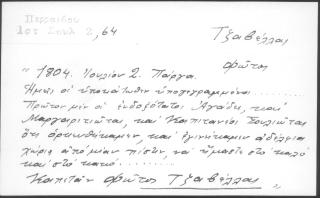 Περραιβού
Ιστ Σουλ 2, 64
Τζαβέλλας
φώτος
" 1804. Ιουλίου 2. Πάργα.
Ημείς οι υποκάτωθεν υπογεγραμμένοι........
Πρώτον μεν οι ενδοξότατοι Αγάδες, και
Μαργαριτιώται, και Καπιτανέοι Σουλιώται
ότι ορκωθήκαμεν, και εγινήκαμεν αδέλφια
χωρίς από μίαν πίστιν, να ήμασθε στο καλό
και στο κακό.......
Καπιτάν φώτος Τζαβέλλας"